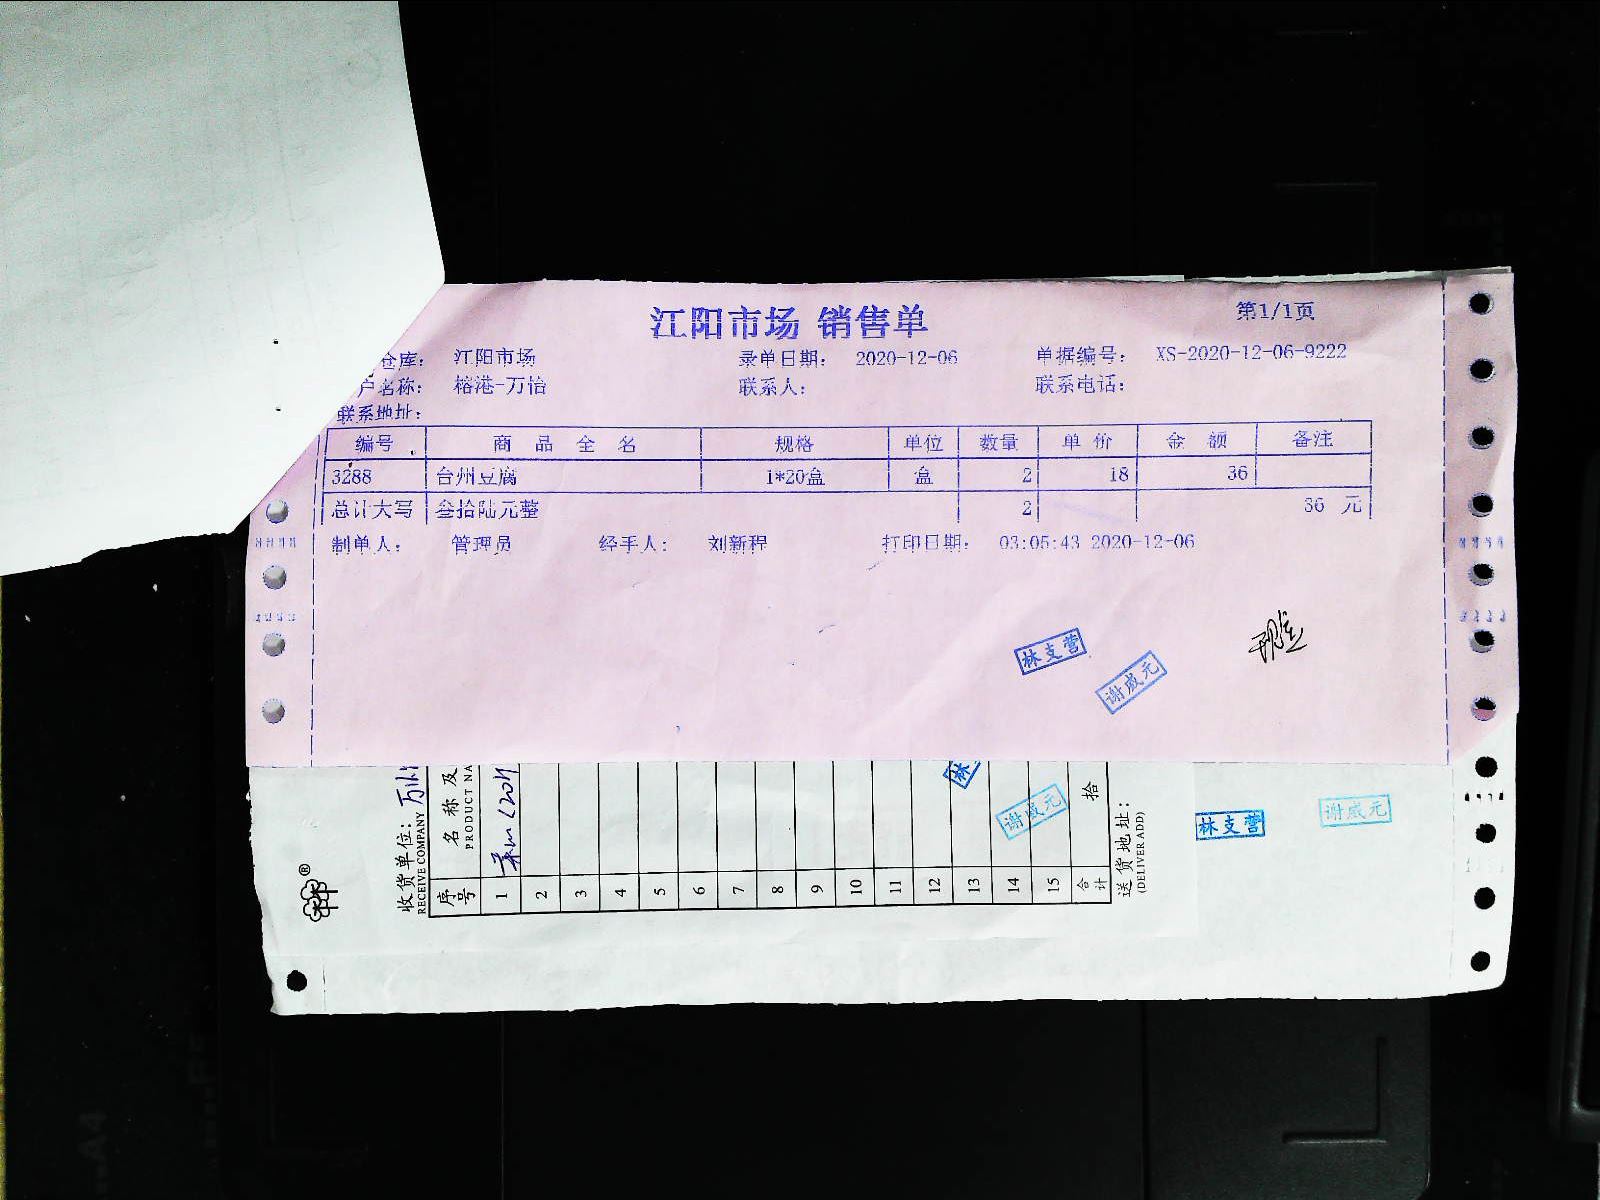 江阳市场 销售单
第1/1页
仓库： 江阳市场 录单日期： 2020-12-06 单据编号： XS-2020-12-06-9222
户名称： 榕港-万怡 联系人： 联系电话：
联系地址：
编号 商品全名 规格 单位 数量 单价 金额 备注
3288 台州豆腐 1*20盒 盒 2 18 36
总计大写 叁拾陆元整 2 36 元
制单人： 管理员 经手人： 刘新程 打印日期： 03:05:43 2020-12-06
林支营
谢威元
林
谢威元
林支营
谢威元
收货单位：
RECEIVE COMPANY
序号 名称及
PRODUCT NA
1
2
3
4
5
6
7
8
9
10
11
12
13
14
15
合计 拾
送货地址：
(DELIVER ADD)
®